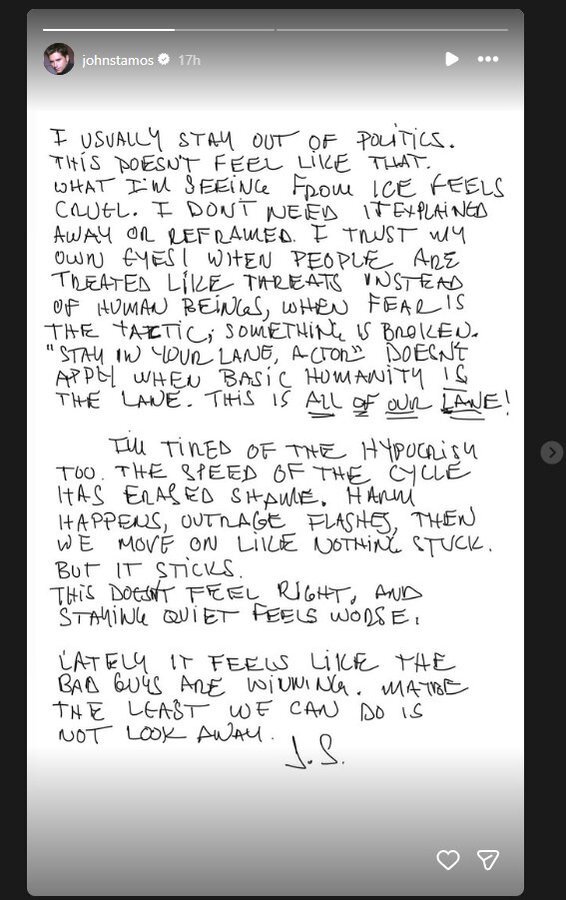 johnstamos 17h
I USUALLY STAY OUT OF POLITICS.
THIS DOESN'T FEEL LIKE THAT.
WHAT I'M SEEING FROM ICE FEELS
CRUEL. I DON'T NEED IT EXPLAINED
AWAY OR REFRAMED. I TRUST MY
OWN EYES! WHEN PEOPLE ARE
TREATED LIKE THREATS INSTEAD
OF HUMAN BEINGS, WHEN FEAR IS
THE TACTIC, SOMETHING IS BROKEN.
"STAY IN YOUR LANE, ACTOR" DOESN'T
APPLY WHEN BASIC HUMANITY IS
THE LANE. THIS IS ALL OF OUR LANE!
I'M TIRED OF THE HYPOCRISY
TOO. THE SPEED OF THE CYCLE
HAS ERASED SHAME. HARM
HAPPENS, OUTRAGE FLASHES, THEN
WE MOVE ON LIKE NOTHING STUCK.
BUT IT STICKS.
THIS DOESN'T FEEL RIGHT, AND
STAYING QUIET FEELS WORSE.
LATELY IT FEELS LIKE THE
BAD GUYS ARE WINNING. MAYBE
THE LEAST WE CAN DO IS
NOT LOOK AWAY.
J.S.